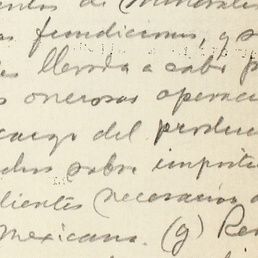 entos de minerales
as fundiciones, y s
es llevada a cabo p
s onerosas operaci
cargo del produc
ados sobre import
dientes necesarios
Mexicana. (g) Re